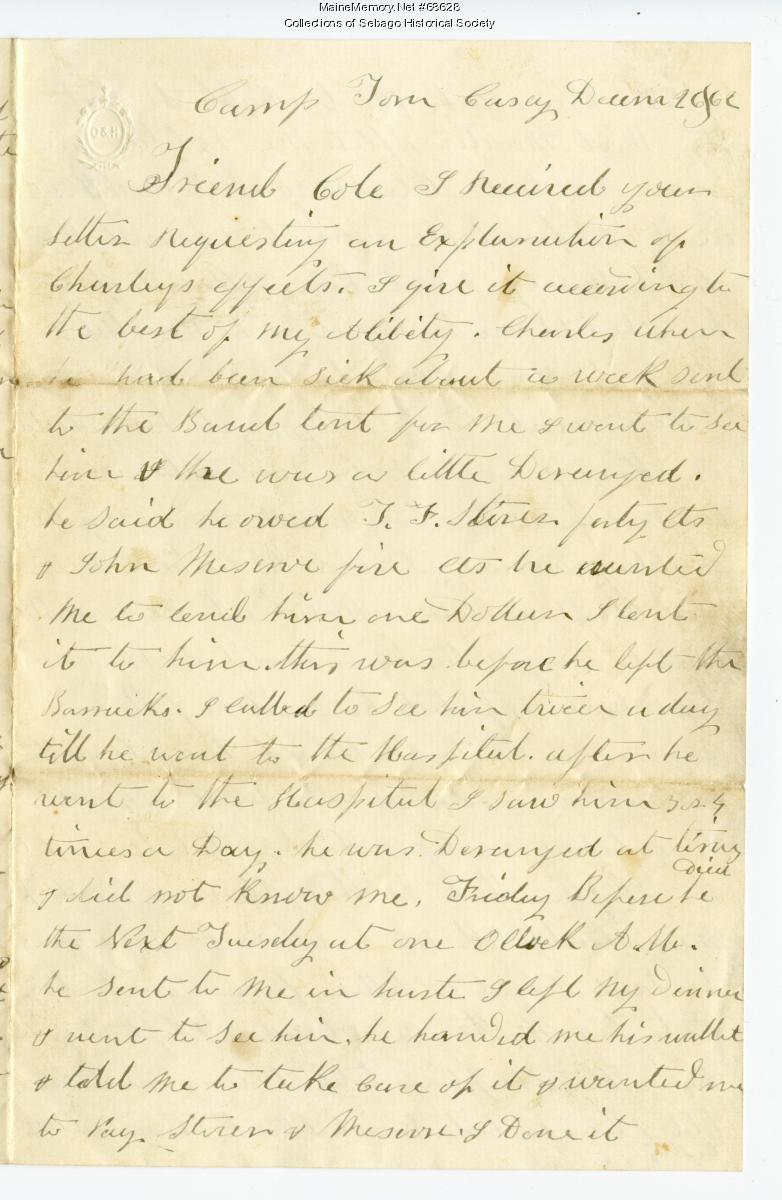 MaineMemory.Net #68628
Collections of Sebago Historical Society
O&H
Camp Tom Casey
Friend Cole I Recived your
letter Requesting an Explanation of
Charleys effects. I give it according to
the best of my Alibity. Charles when
he had been sick about a week sent
to the Band tent for me I went to see
him & he was a little Deranged.
he said he owed T. F. forty cts
& John Meserve five cts he wanted
me to lend him one Dollar I lent
it to him. this was before he left the
Barracks. I called to see him twice a day
till he went to the Haspital. after he
went to the Haspital I saw him 3 or 4
times a Day. he was Deranged at times
& did not know me. Friday Before he died
the Next Tuesday at one Oclock A.M.
he sent to me in haste I left my Dinner
& went to see him. he handed me his wallet
& told me to take care of it & wanted me
to Pay & Meserve. I Done it